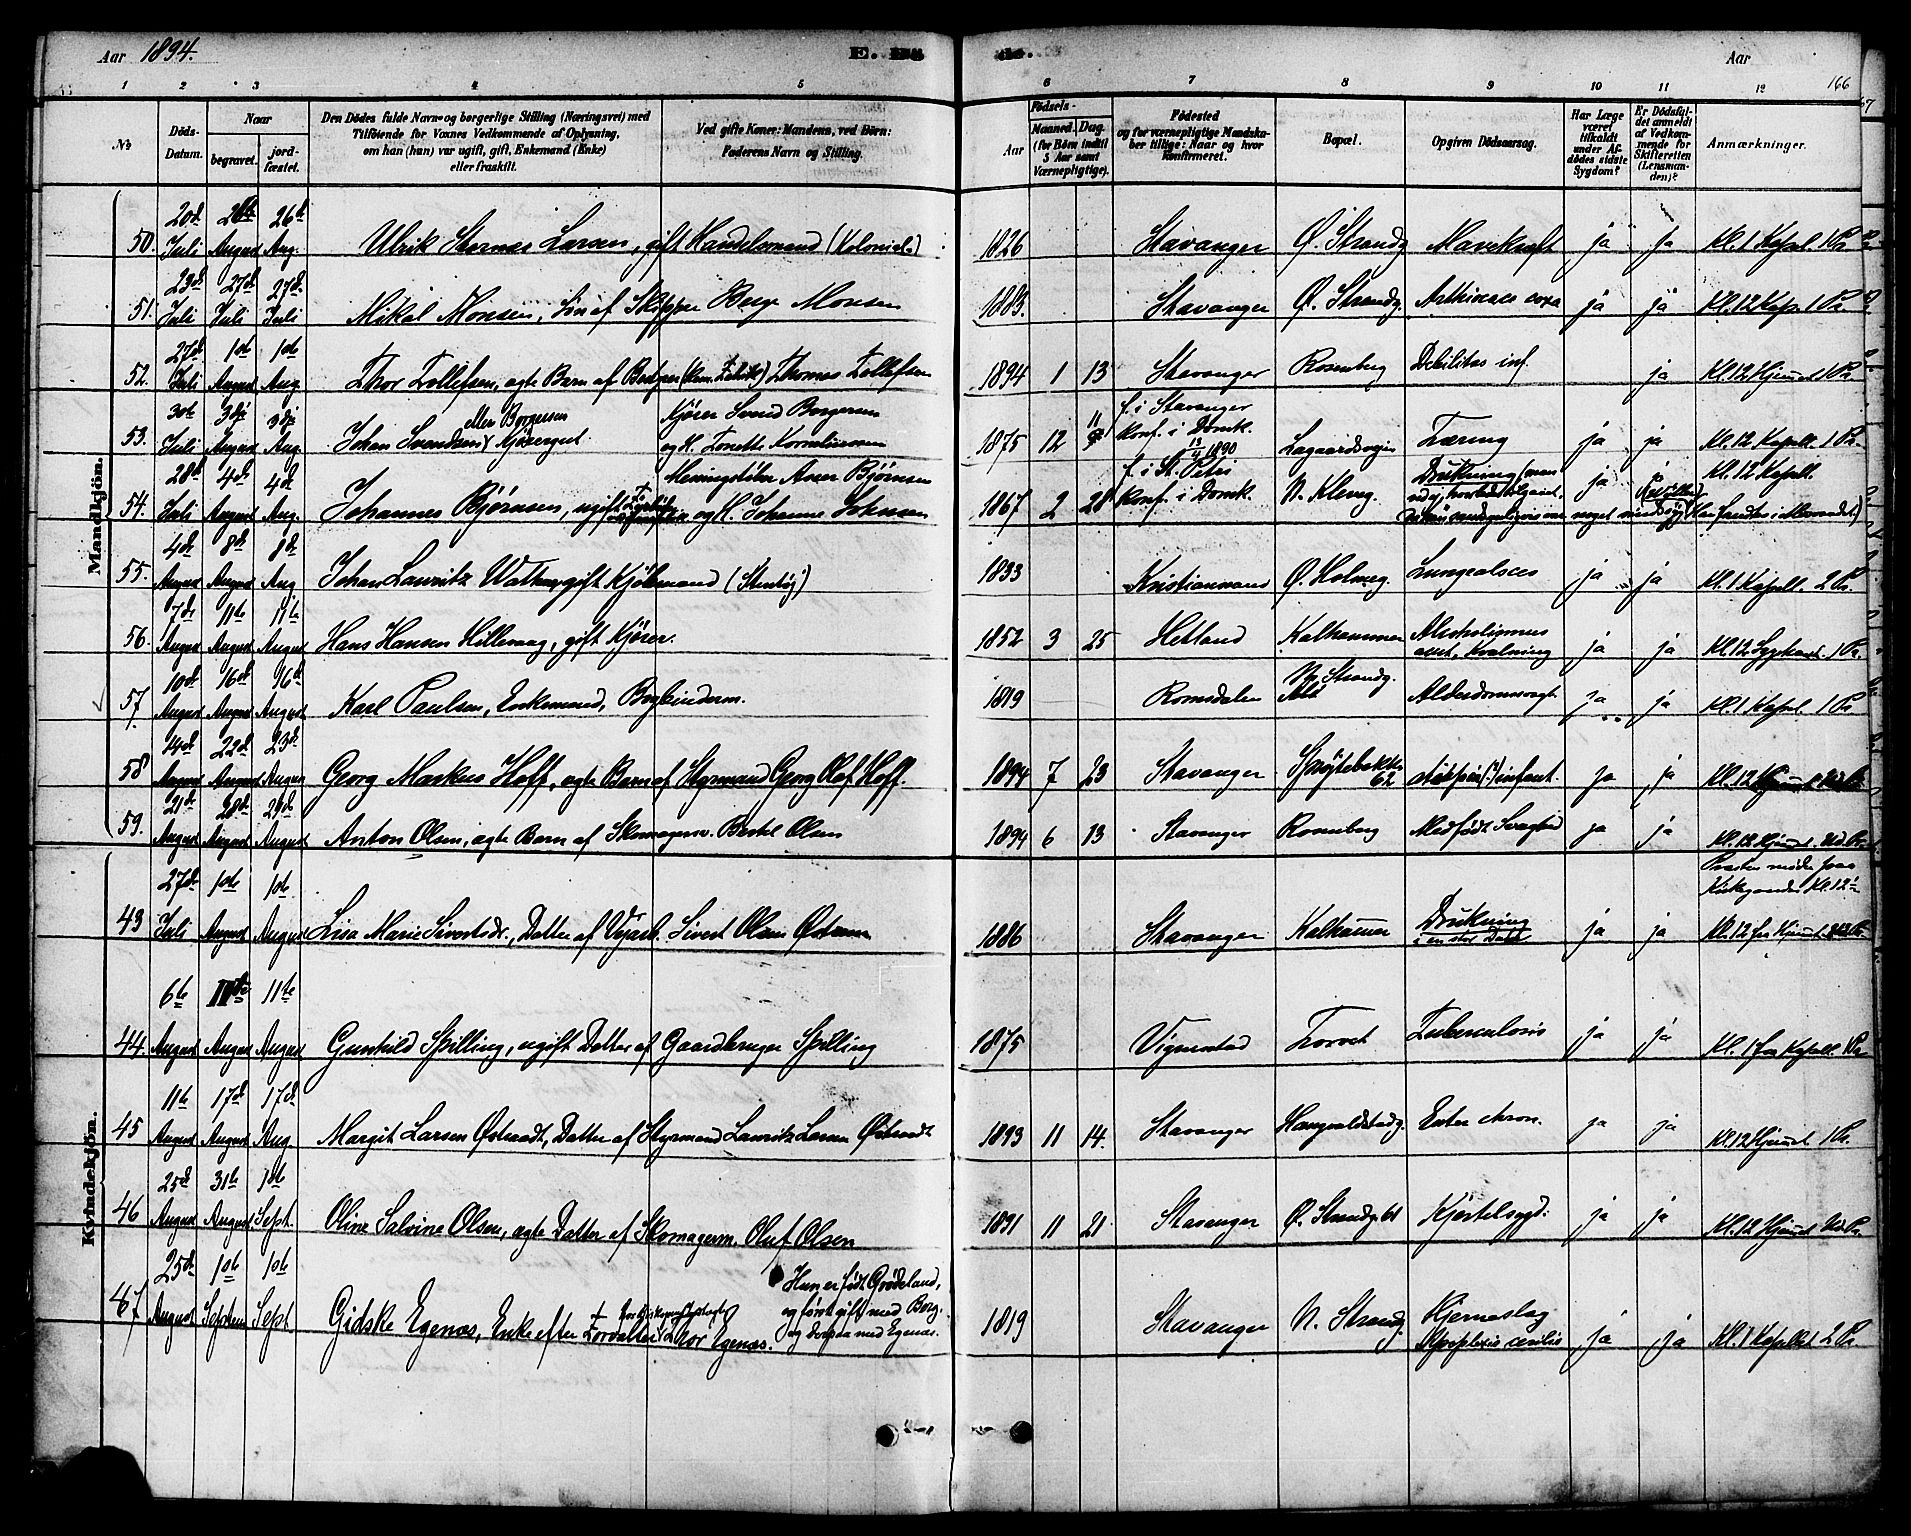 Aar 1894.
E. Dø
de.
Aar
166
1 2 3 4 5 6 7 8 9 10 11 12
No
Døds-Datum.
Naar begravet. jordfæstet.
Den Dødes fulde Navn og borgerlige Stilling (Næringsvei) med Tilføiende for Voxnes Vedkommende af Oplysning, om han (hun) var ugift, gift, Enkemand (Enke) eller fraskilt.
Ved gifte Koner: Mandens, ved Børn: Faderens Navn og Stilling.
Fødsels-
Aar Maaned. Dag.
(for Børn indtil 5 Aar samt Værnepligtige).
Fødested og for værnepligtige Mandskaber tillige: Naar og hvor Konfirmeret.
Bopæl.
Opgiven Dødsaarsag.
Har Læge været tilkaldt under Afdødes sidste Sygdom?
Er Dødsfaldet anmeldt af Vedkommende for Skifteretten (Lensmanden)?
Anmærkninger.
Mandkjøn.
50. 20de Juli August 26de Aug. Ulrik Larsen, gift Handelsmand (Kolonial) 1826 Stavanger Ø. Strandg. Mavekræft ja ja Kl. 1 Kapel. 1 Pr.
51. 23de Juli 27de Juli 27de Juli Mikal Monsen, Søn af Skipper Berge Monsen 1883. Stavanger Ø. Strandg. ja ja Kl. 12 Kap. 1 Pr.
52. 27de Juli 1ste August 1ste Aug. Thor Tollefsen, ægte Barn af Thomas Tollefsen 1894 1 13 Stavanger Rosenberg Debilitas inf. ja Kl. 12 Hjemmet 1 Pr.
53. 30te Juli 3dje August 3dje Aug. Johan Svendsen eller Borgersen Kjøregut Kjører Svend Borgersen og H. Tonette Korneliussen 1875 12 11 f. i Stavanger Konf. i Domk. 13/4 1890 Lagaardsveien Tæring ja ja Kl. 12 Kapell. 1 Pr.
54. 28de Juli 4de August 4de Aug. Johannes Bjørnsen, ugift Bjørnsen og H. Johanne Johnsen 1867 2 28 f. i St. Petri Konf. i Domk. N. Kleivg. Drukning ja Kl. 12 Kapell.
55. 4de August 8de August 8de Aug. Johan Lauritz Wathne, gift Kjøbmand (Stentøj) 1833 Kristianssand Ø. Holmeg. Lungeabsces ja ja Kl. 1 Kapell. 2 Pr.
56. 7de August 11te August 11te August Hans Hansen Hillevaag, gift Kjører. 1852 3 25 Hetland Kalhammer Alcoholismus acut, Kvælning ja ja Kl. 12 Sygehuset. 1 Pr.
57. 10de August 16de August 16de August Karl Paulsen, Enkemand, Bogbinderm. 1819 Romsdalen N. Strandg. Alderdomssvagh. ja ja Kl. 1 Kapel. 1 Pr.
58 14de August 22de August 23de August Georg Markus Hoff, ægte Barn af Styrmand Georg Olaf Hoff. 1894 7 23 Stavanger Sprøitebakken 62 infant. ja ja Kl. 12 Hjemmet
59. 21de August 28de August 29de August Anton Olsen, ægte Barn af Skomagersv. Bertel Olsen 1894 6 13 Stavanger Rosenberg Medfødt Svaghed ja ja Kl. 12 Hjemmet. Ud. Pr.
Præsten møder paa Kirkegaarden Kl. 12½
Kvindekjøn.
43 27de Juli 1ste August 1ste August Lisa Marie Sivertsdr., Datter af Sivert Olsen 1886 Stavanger Kalhammer Drukning ja ja Kl. 12 fra Hjemmet
44. 6te August 11te August 11te August Gunhild Spilling, ugift Datter af Gaardbruger Spilling 1875 Vigrestad Torvet Tuberculosis ja ja Kl. 1 fra Kapell. 1 Pr
45 11te August 17de August 17de Aug. Margit Larsen Østraadt, Datter af Styrmand Lauritz Larsen Østraadt 1893 11 14. Stavanger Haugvaldstadg. Enter. chron. ja ja Kl. 12 Hjemmet. 1 Pr.
46 25de August 31te August 1ste Sept. Oline Salvine Olsen, ægte Datter af Skomagerm. Oluf Olsen 1891 11 21 Stavanger Ø. Strandg. 61 Kjertelsygd. ja ja Kl. 12 Hjemmet Ud. Pr.
47 25de August 1ste Septem. 1ste Sept. Gidske Egenæs, Enke efter Forvalter Thor Egenæs. Hun er født Grødeland, og først gift med Borg. og derpaa med Egenæs. 1819 Stavanger N. Strandg. Hjerneslag Apoplexia senilis ja ja Kl. 1 Kapellet 2 Pr.